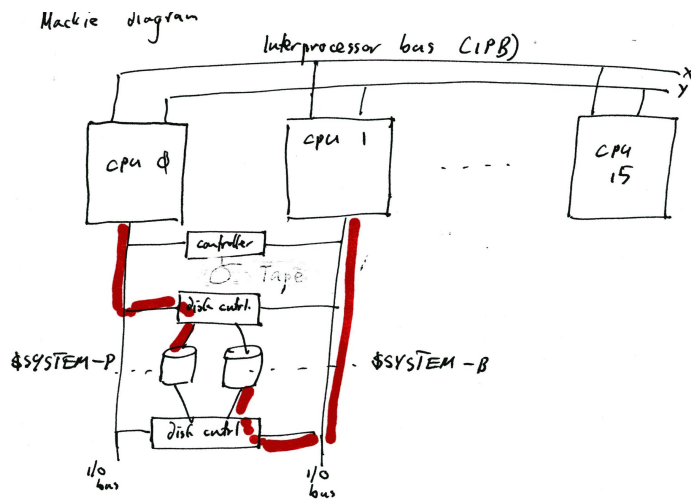 Mackie diagram
Interprocessor bus (IPB)
X
Y
CPU 0
CPU 1
.....
CPU
15
controller
Tape
disk cntrl.
$SYSTEM-P
$SYSTEM-B
disk cntrl
I/O
bus
I/O
bus